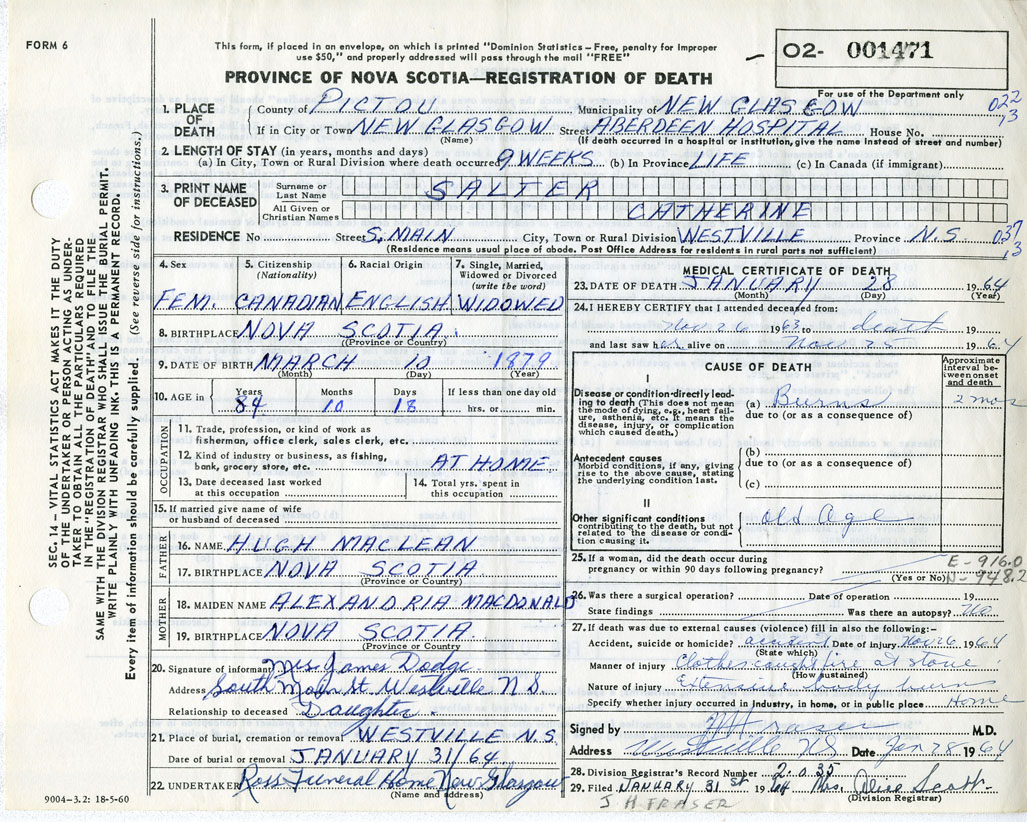 FORM 6
This form, if placed in an envelope, on which is printed "Dominion Statistics – Free, penalty for improper
use $50," and properly addressed will pass through the mail "FREE"
PROVINCE OF NOVA SCOTIA—REGISTRATION OF DEATH
02- 001471
For use of the Department only
1. PLACE OF DEATH
County of PICTOU Municipality of NEW GLASGOW 022
If in City or Town NEW GLASGOW Street ABERDEEN HOSPITAL House No. 13
(Name) (If death occurred in a hospital or institution, give the name instead of street and number)
2. LENGTH OF STAY (in years, months and days)
(a) In City, Town or Rural Division where death occurred 9 WEEKS (b) In Province LIFE (c) In Canada (if immigrant)
3. PRINT NAME OF DECEASED
Surname or Last Name SALTER
All Given or Christian Names CATHERINE
RESIDENCE No Street S. MAIN City, Town or Rural Division WESTVILLE Province N.S 037
(Residence means usual place of abode. Post Office Address for residents in rural parts not sufficient) 13
4. Sex FEM.
5. Citizenship (Nationality) CANADIAN
6. Racial Origin ENGLISH
7. Single, Married, Widowed or Divorced (write the word) WIDOWED
8. BIRTHPLACE NOVA SCOTIA.
(Province or Country)
9. DATE OF BIRTH MARCH 10 1879
(Month) (Day) (Year)
10. AGE in Years 84 Months 10 Days 18 If less than one day old hrs. or min.
OCCUPATION
11. Trade, profession, or kind of work as
fisherman, office clerk, sales clerk, etc.
12. Kind of industry or business, as fishing,
bank, grocery store, etc. AT HOME
13. Date deceased last worked
at this occupation
14. Total yrs. spent in
this occupation
15. If married give name of wife
or husband of deceased
FATHER
16. NAME HUGH MACLEAN
17. BIRTHPLACE NOVA SCOTIA
(Province or Country)
MOTHER
18. MAIDEN NAME ALEXANDRIA MACDONALD
19. BIRTHPLACE NOVA SCOTIA.
(Province or Country)
20. Signature of informant Mrs. James Dodge
Address South Main St Westville N.S.
Relationship to deceased Daughter.
21. Place of burial, cremation or removal WESTVILLE N.S.
Date of burial or removal JANUARY 31/64
22. UNDERTAKER Ross Funeral Home New Glasgow
(Name and address)
MEDICAL CERTIFICATE OF DEATH
23. DATE OF DEATH JANUARY 28 1964
(Month) (Day) (Year)
24. I HEREBY CERTIFY that I attended deceased from:
Nov 26 1963 to death 19
and last saw her alive on Nov 25 1964
CAUSE OF DEATH
Approximate interval between onset and death
I
Disease or condition directly leading to death (This does not mean
the mode of dying, e.g., heart failure, asthenia, etc. It means the
disease, injury, or complication
which caused death.)
(a) Burns 2 mos
due to (or as a consequence of)
Antecedent causes
Morbid conditions, if any, giving
rise to the above cause, stating
the underlying condition last.
(b)
due to (or as a consequence of)
(c)
II
Other significant conditions
contributing to the death, but not
related to the disease or condition causing it.
Old Age
25. If a woman, did the death occur during
pregnancy or within 90 days following pregnancy? (Yes or No)
E-916.0
N-948.2
26. Was there a surgical operation? Date of operation 19
State findings Was there an autopsy? No
27. If death was due to external causes (violence) fill in also the following:-
Accident, suicide or homicide? accident Date of injury Nov 26 1964
(State which)
Manner of injury Clothes caught fire at stove
(How sustained)
Nature of injury Extensive body burns
Specify whether injury occurred in industry, in home, or in public place Home
Signed by J H Fraser M.D.
Address Westville NS Date Jan 28 1964
28. Division Registrar's Record Number 2035
29. Filed JANUARY 31st 1964 Mrs. Alice Scott
(Division Registrar)
J H FRASER
9004-3.2: 18-5-60
SEC. 14 – VITAL STATISTICS ACT MAKES IT THE DUTY
OF THE UNDERTAKER OR PERSON ACTING AS UNDER-
TAKER TO OBTAIN ALL THE PARTICULARS REQUIRED
IN THE "REGISTRATION OF DEATH" AND TO FILE THE
SAME WITH THE DIVISION REGISTRAR WHO SHALL ISSUE THE BURIAL PERMIT.
WRITE PLAINLY WITH UNFADING INK. THIS IS A PERMANENT RECORD.
Every item of information should be carefully supplied. (See reverse side for instructions.)